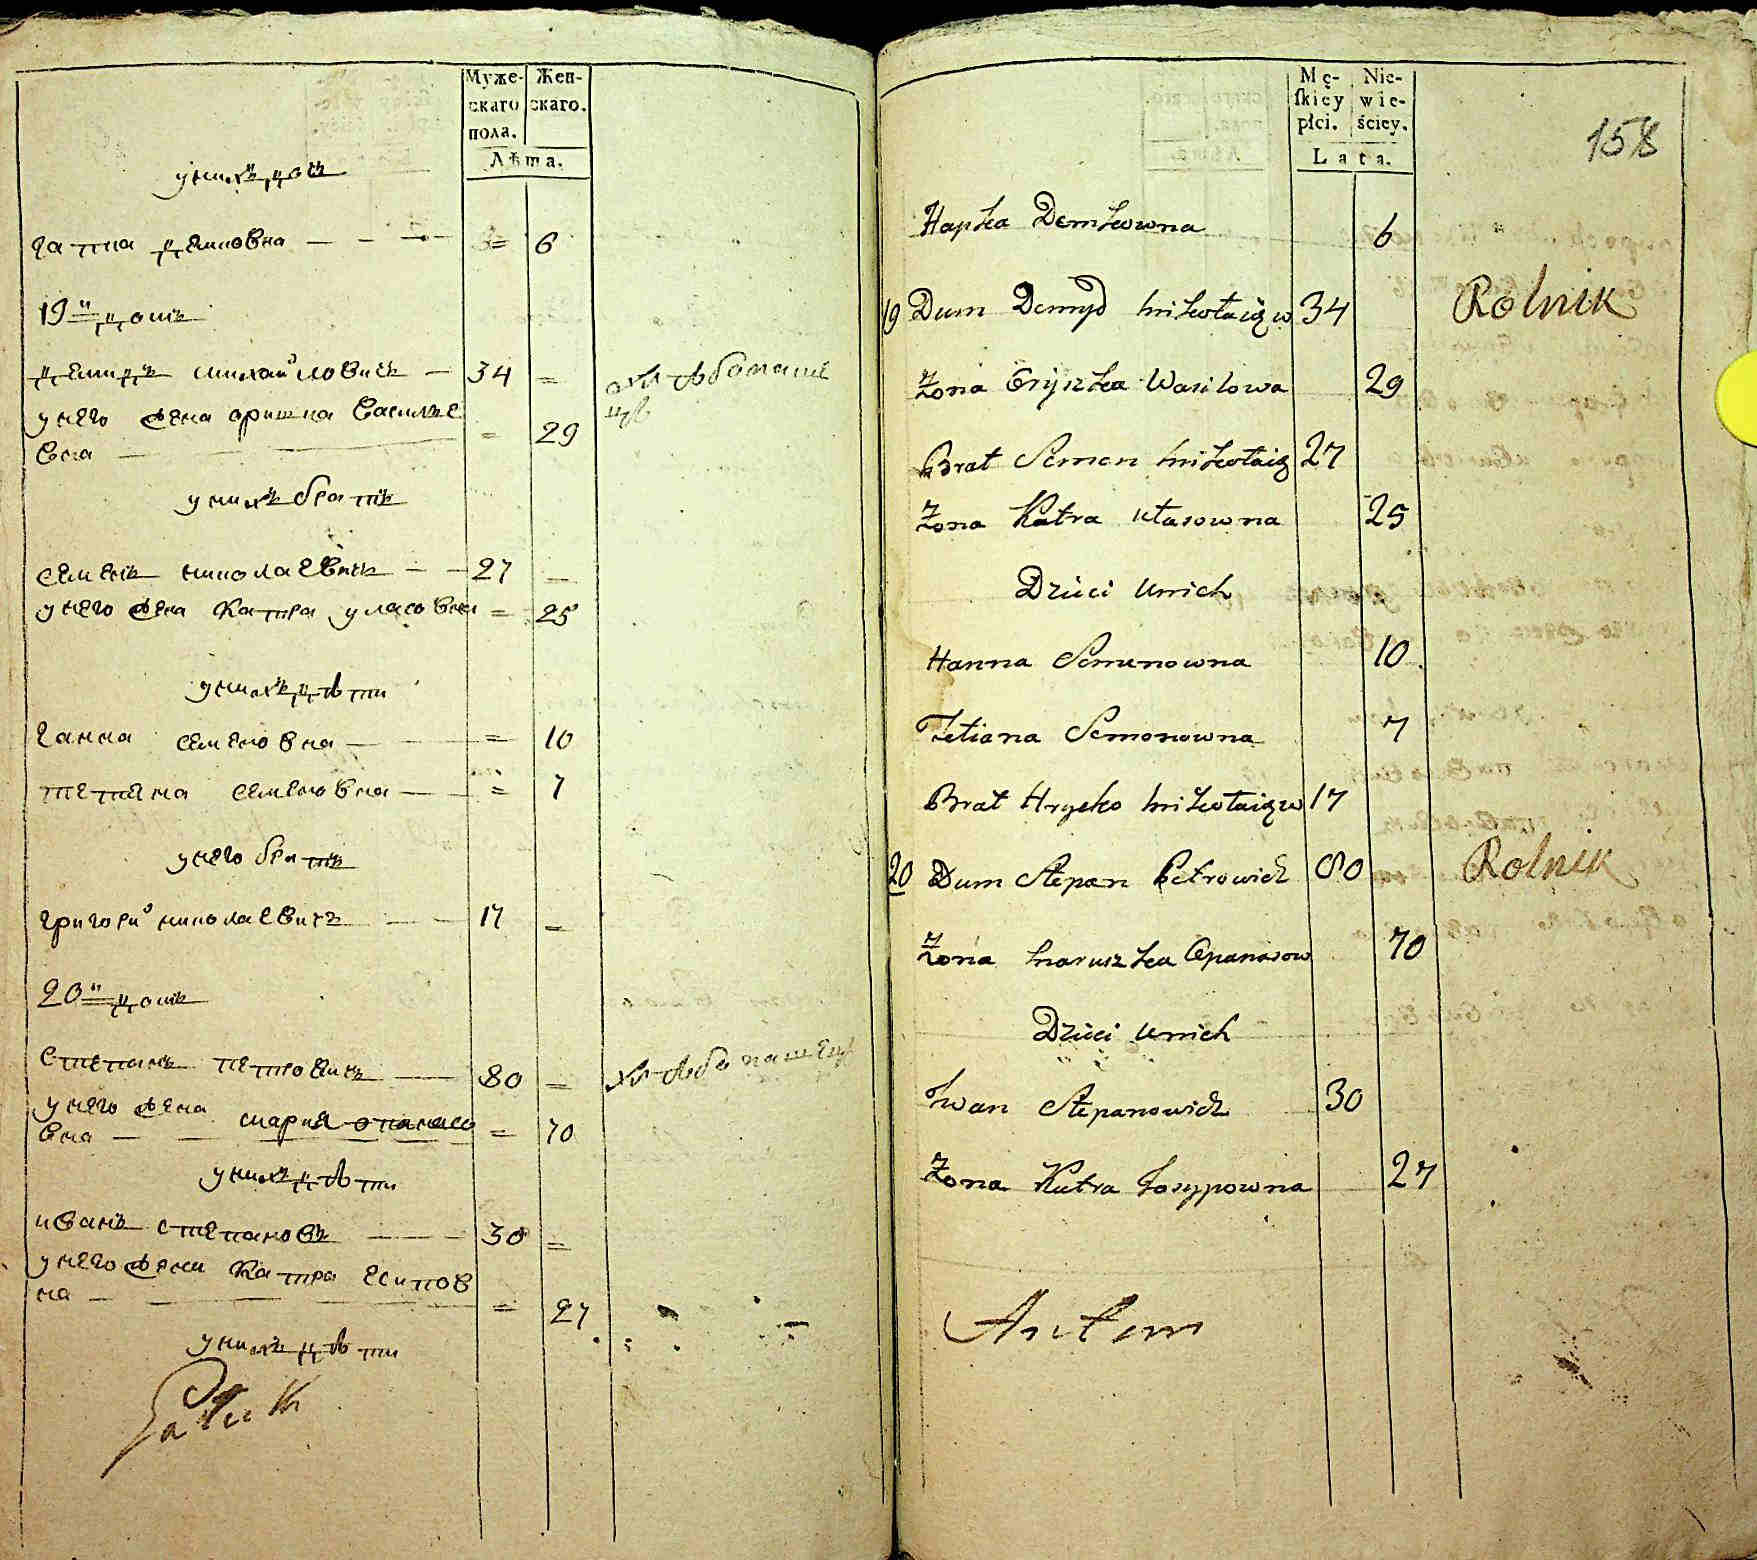 Муже-
скаго
пола.
Жен-
скаго.
Лѣта.
у нихъ дочь
гапка демковна 6
19й домъ
демидъ михайловичъ 34 хлѣбопаше
цъ
у него жена оришка василье
вна 29
у нихъ братъ
семенъ николаевичъ 27
у него жена катра уласовна 25
у нихъ дѣти
ганна семеновна 10
тетяна семеновна 7
у него братъ
григорий николаевичъ 17
20й домъ
степанъ петровичъ 80 хлѣбопашецъ
у него жена мария опанасо
вна 70
у нихъ дѣти
иванъ степановъ 30
у него жена катра есипов
на 27
у нихъ дѣти
Mę-
skiey
płci.
Nie-
wie-
ściey.
Lata.
158
Hapka Demkowna 6
19 Dum Demyd Mikołaiew 34 Rolnik
Żona Oryszka Wasilowa 29
Brat Semen Mikołaie 27
Żona Katra Ułasowna 25
Dzieci Unich
Hanna Semenowna 10
Tetiana Semonowna 7
Brat Hryćko Mikołaiew 17
20 Dum Stepan Petrowicz 80 Rolnik
Żona Maruszka Opanasow 70
Dzieci Unich
Iwan Stepanowicz 30
Żona Katra Iosypowna 27